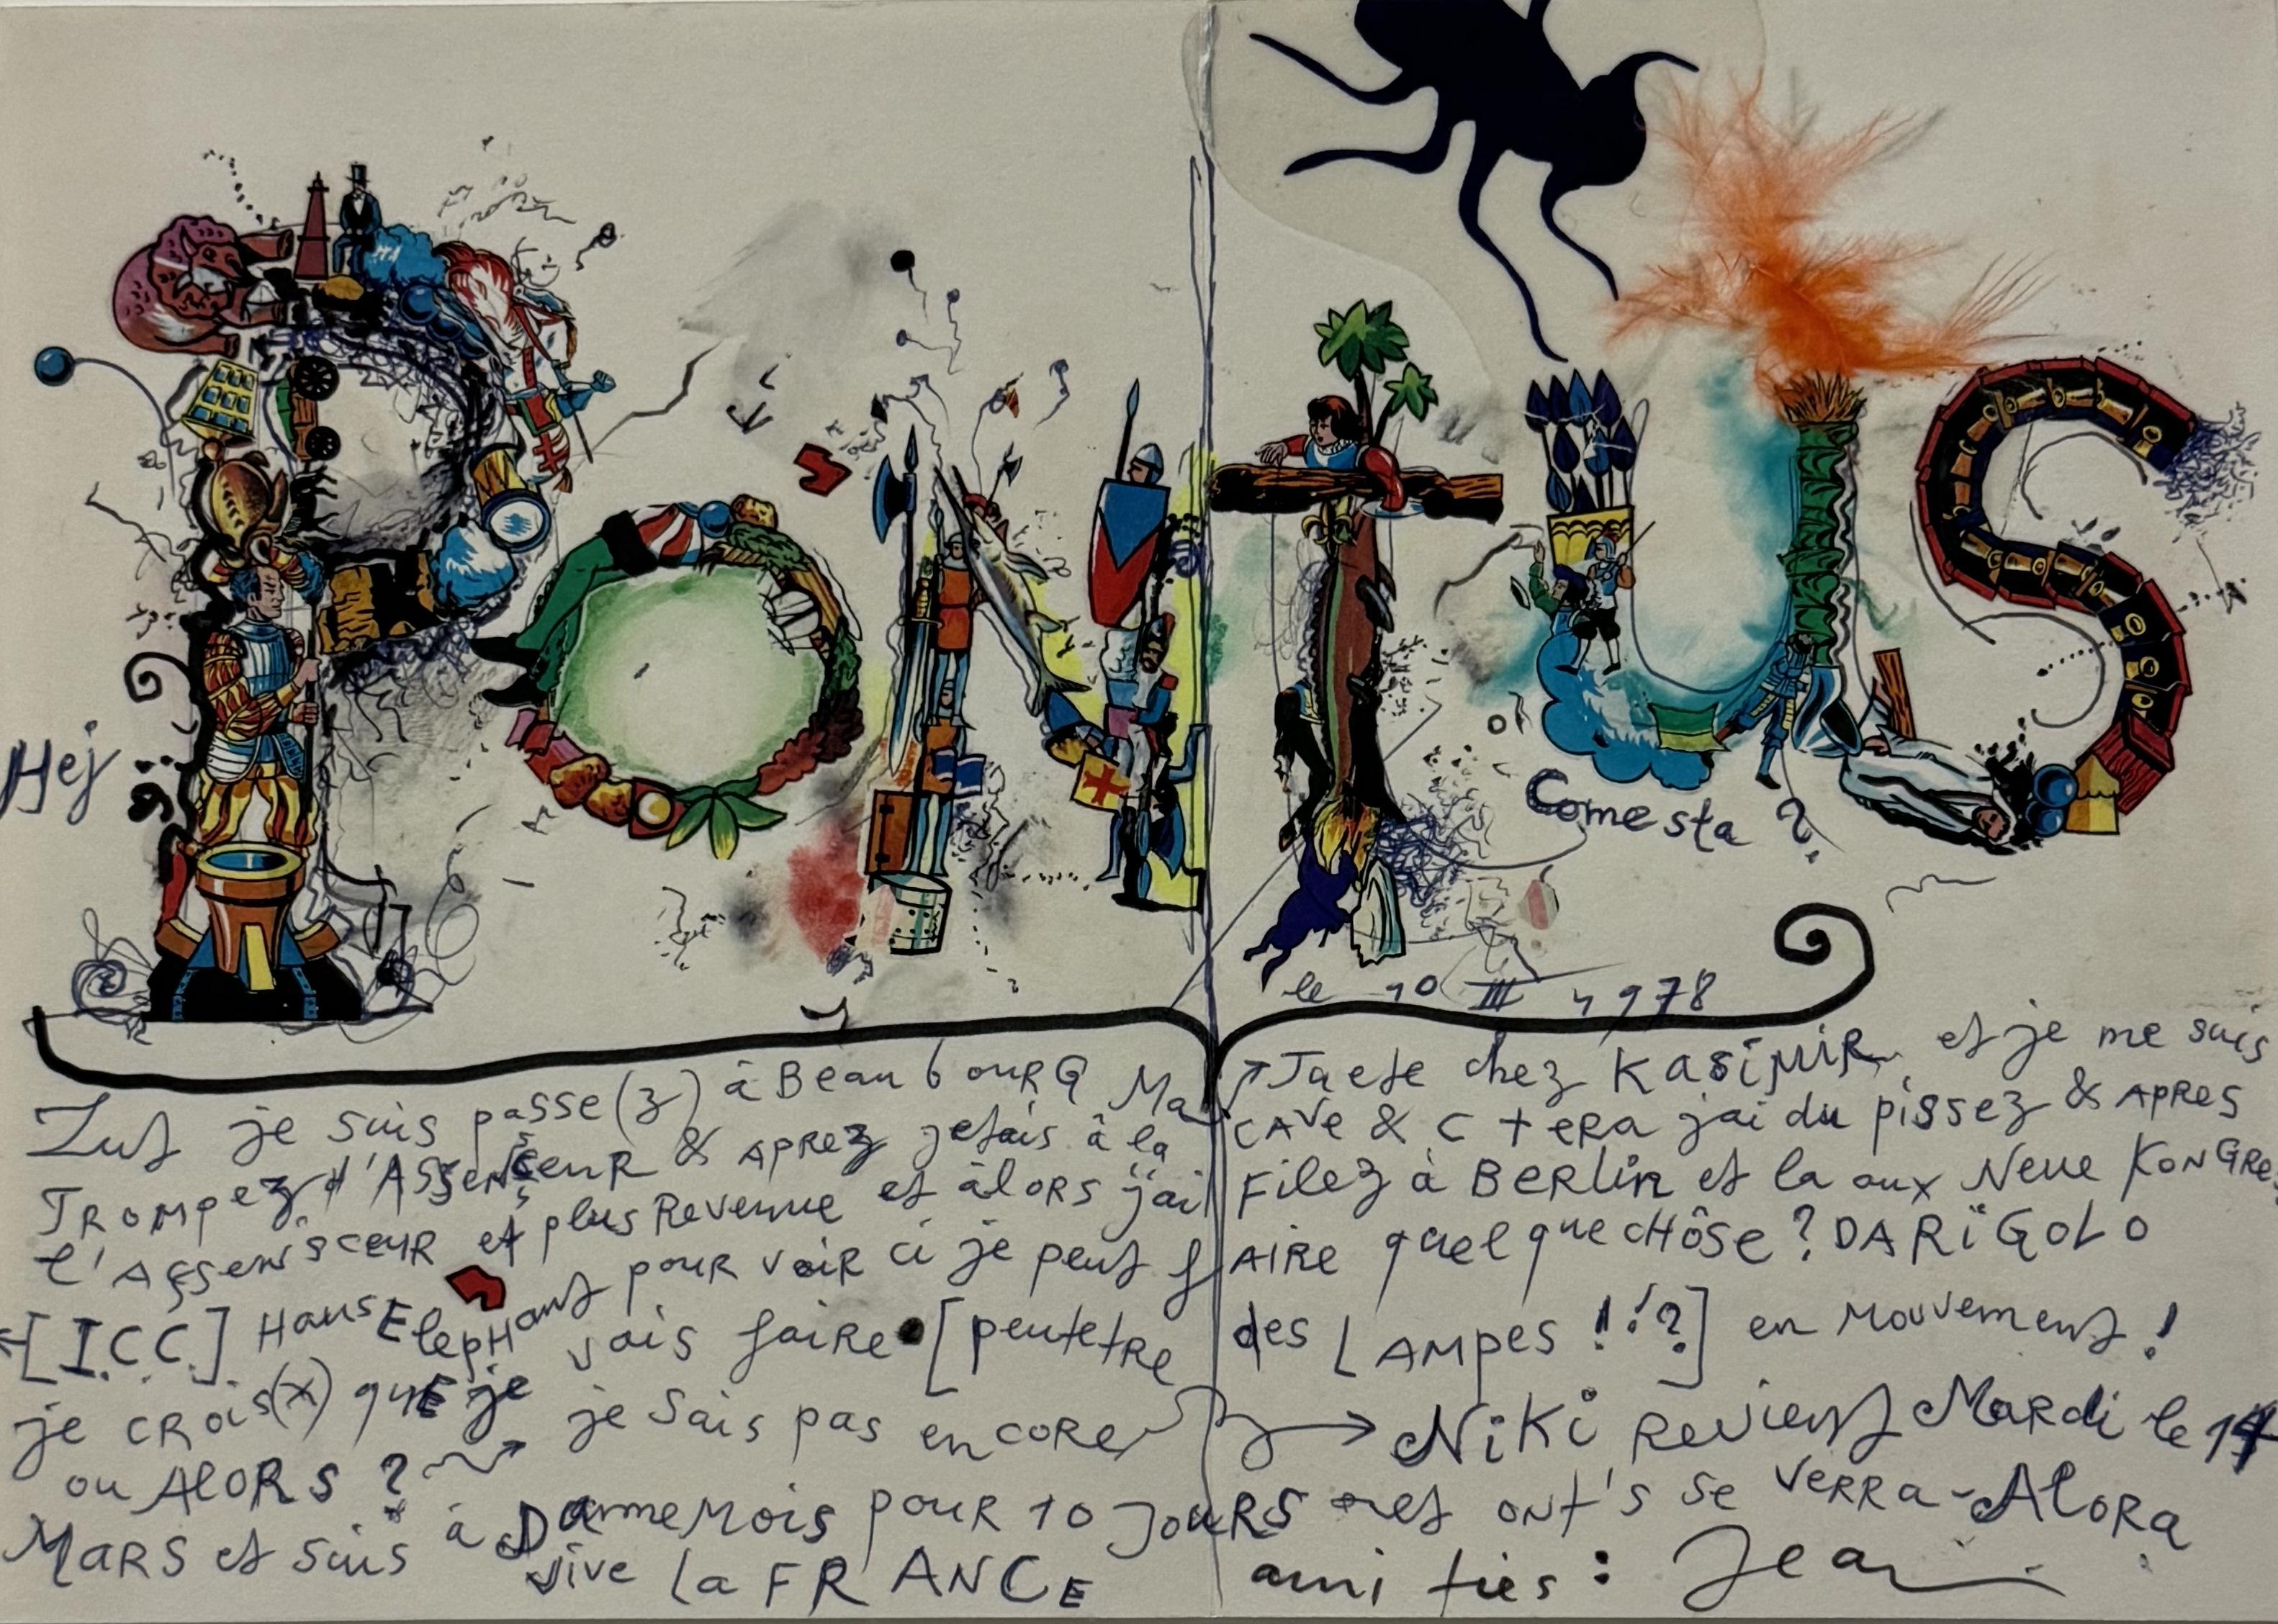 PONTUS
Hej
Come sta ?
le 10 III 1978
Zut je suis passe(z) à BeaubourG Ma ↗ Jaete chez KasiMIR et je me suis
TROMpez d'AssenSceuR & APRez jetais à la CAVe & C tera jai du pissez & APRES
l'AssenSceuR et plus Revenue et àlORS j'ai Filez à BERLin et la aux Neue KonGRes
[I.C.C.] Haus ElepHant pour voir ci je peut fAIRE quelquecHôSe ? DARiGoLo
je cRois(x) quE je vais faire [peutetRe des LAMpes !!!?] en Mouvement !
ou AlORS ? je Sais pas encore → NiKi Revient MaRdi le 14
MaRS et suis à DaNNeMois pour 10 JouRS et ont's se veRRa - AloRa
vive la FRANCE ami ties : Jean